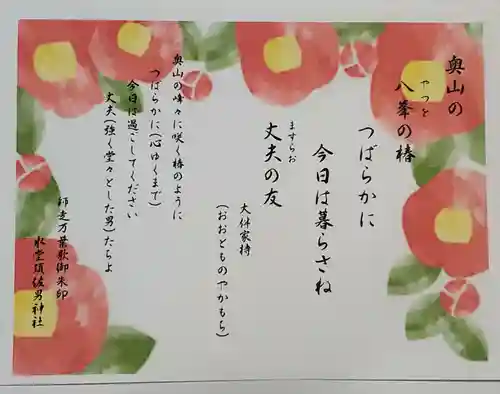 奥山の
八峯の椿
やつを
つばらかに
今日は暮らさね
ますらお
丈夫の友
大伴家持
(おおとものやかもち)
奥山の峰々に咲く椿のように
つばらかに(心ゆくまで)
今日は過ごしてください
丈夫(強く堂々とした男)たちよ
師走万葉歌御朱印
水堂須佐男神社